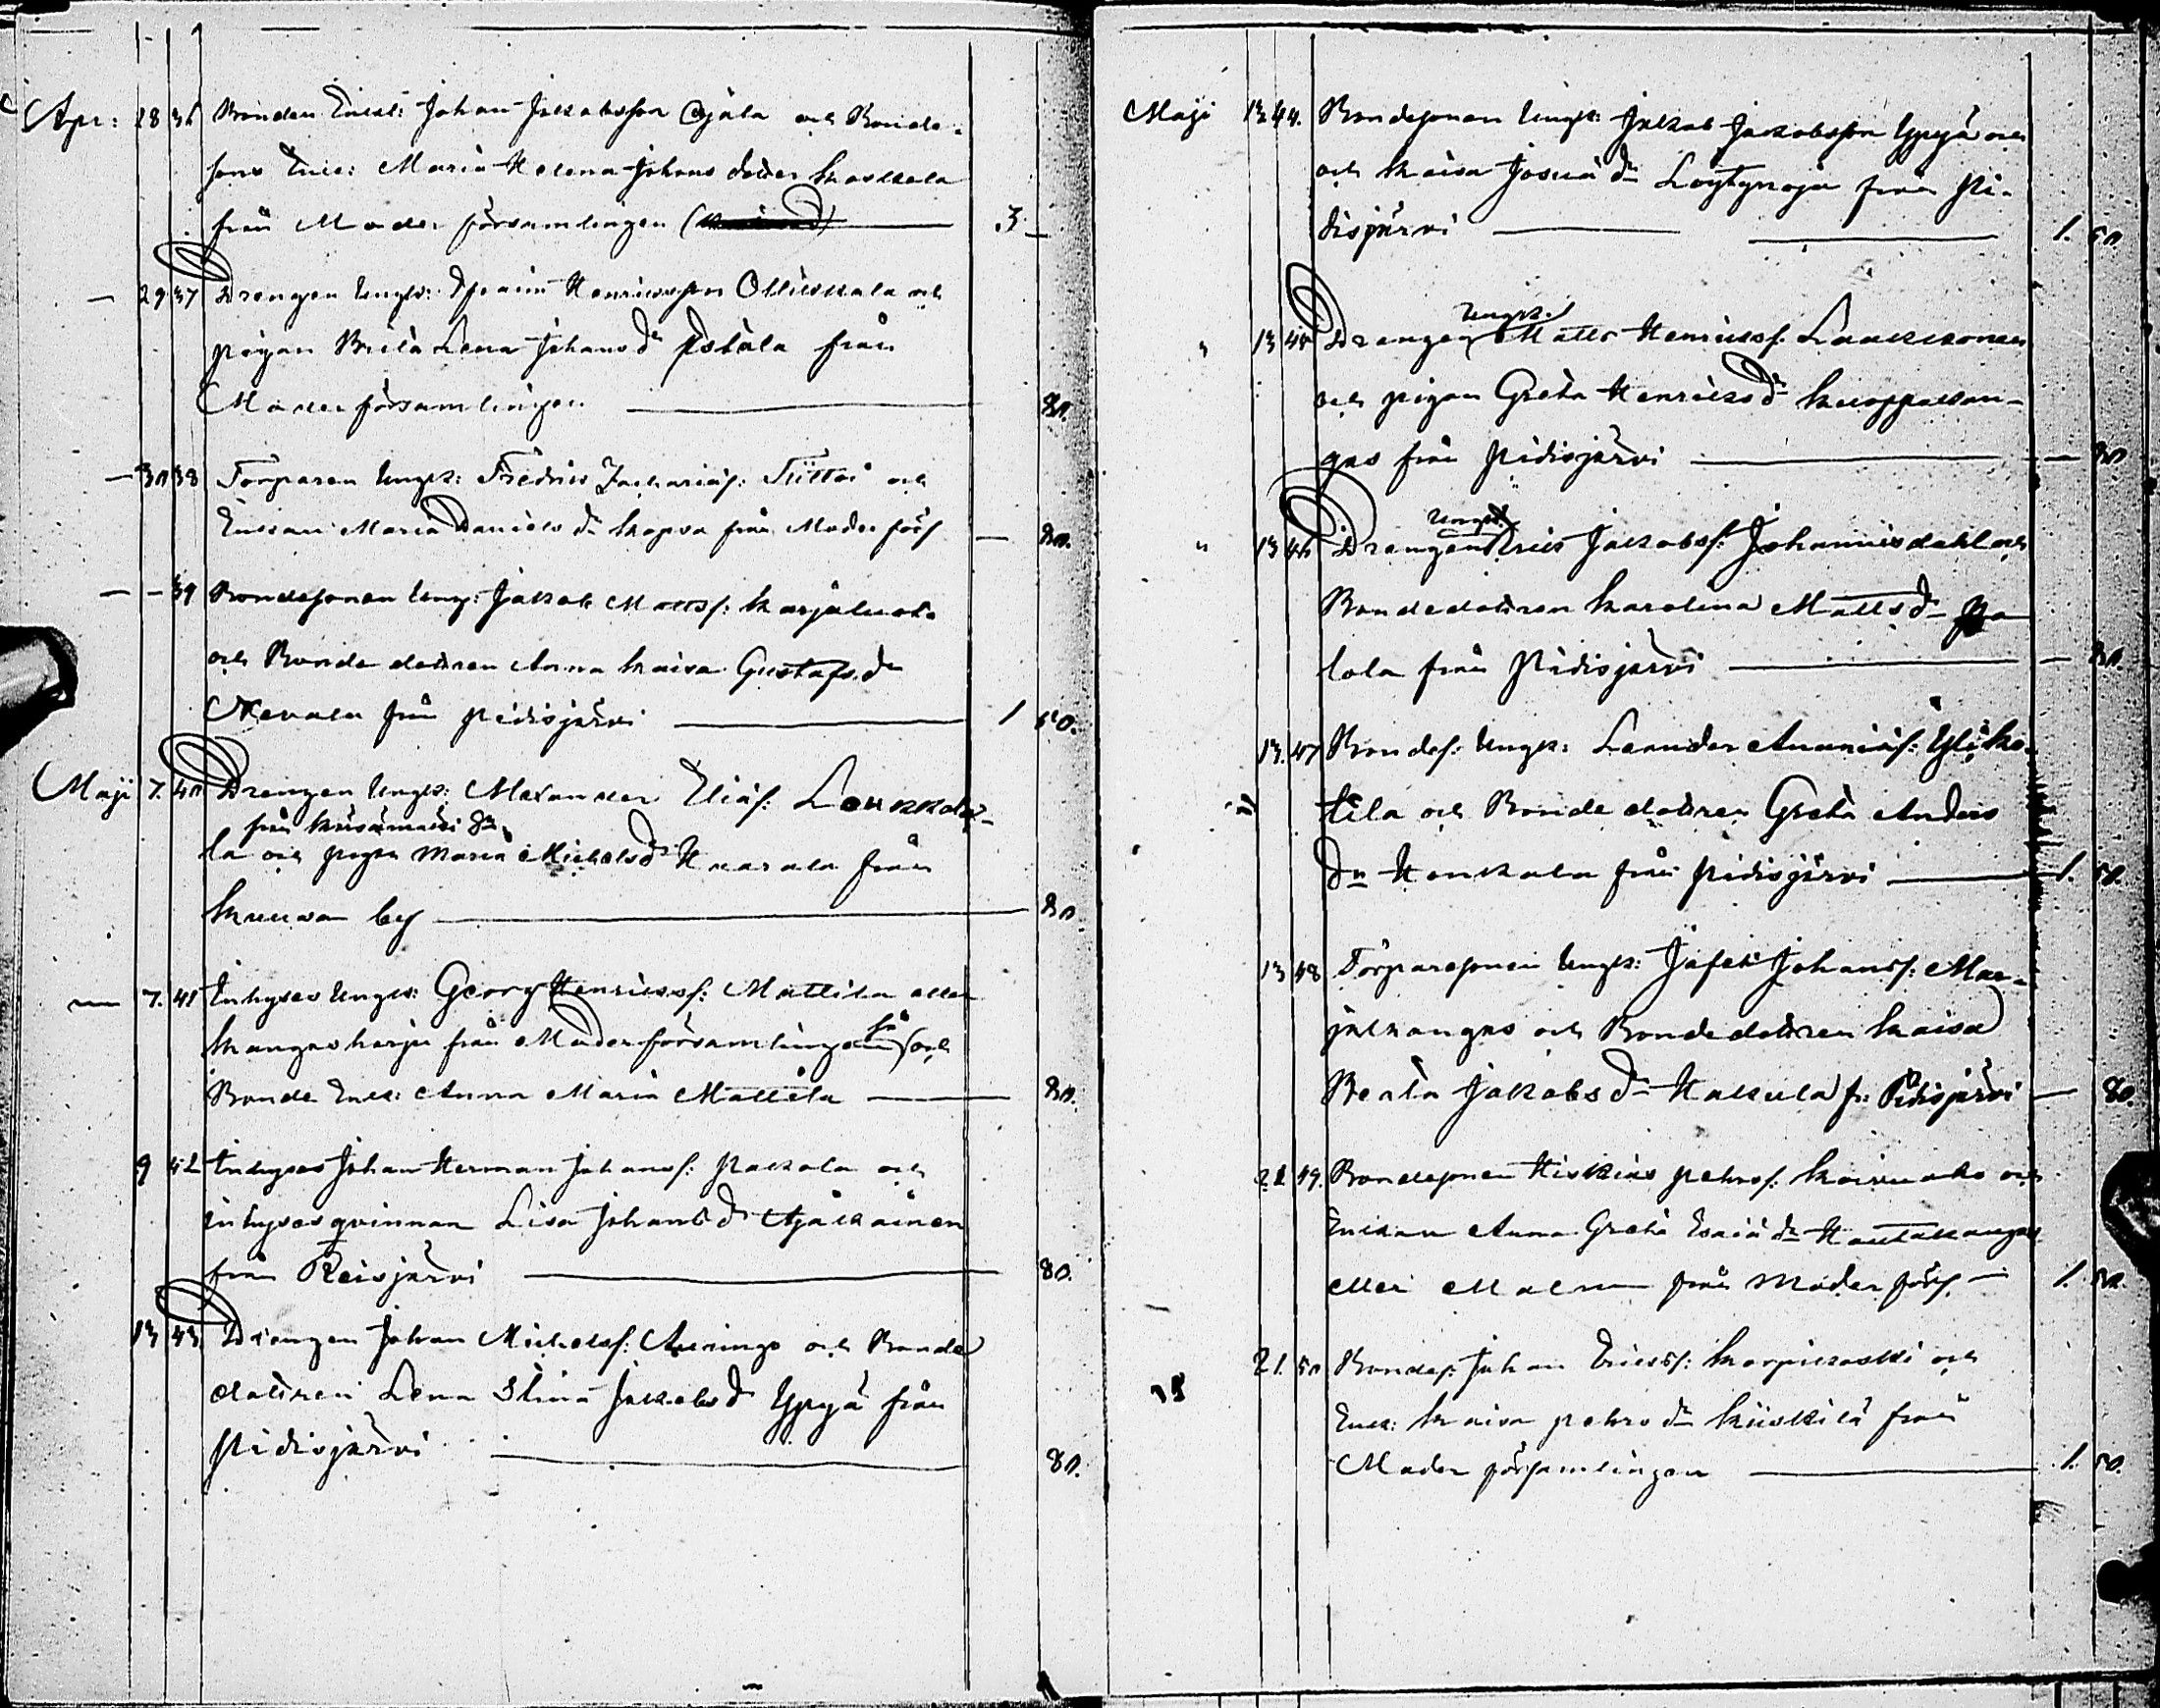 Apr: 28 36 Bonden Enkl: Johan Jakobsson Ojala och Bonde-
sons Enk: Maria Helena Johans doter Koskela
från Moder församlingen ( 3 —
— 29 37 Drengen Ungk: Efraim Henriksson Olliskala och
pigan Brita Lena Johans dr Istala från
Moderförsamlingen — 80.
— 30 38 Torparen Ungk: Fredrik Zachariæ: Tiitto och
Enkan Maria Daniels dr Kopsa från Moder förs — 80.
— — 39 Bondesonen Ung: Jakob Matts: Karjaluoto
och Bonde dottren Anna Kaisa Gustafs dr
Nevala från Pidisjärvi — 1 50.
Maji 7. 40 Drengen Ungk: Alexander Eliæ: Loukkola-
från Kärsämäki
la och pigan Maria Michelsdr Haarala från
Kuusa by — 80
— 7. 41 Inhyses Ungk: Georg Henrikss: Mattila eller
Kangasharju från Moderförsamlingen och
Bonde Enk: Anna Maria Mattila — 80.
9 42 Inhyses Johan Herman Johanss: Pakola och
inhyses qvinnan Lisa Johans dr Ojalainen
från Reisjärvi — 80.
13 43 Drengen Johan Michelss: Aeringe och Bonde
dottren Lena Stina Jakobs dr Yppyä från
Pidisjärvi — 80.
Maji 13 44. Bondesonen Ungk: Jakob Jakobsson Yppyä och
och Kaisa Josua dr Löytynoja från Pi-
disjärvi — 1. 50.
" 13 45 Drengen Ungk. Matts Henrikss. Laakkonen
och pigan Greta Henriks dr Kuoppakan-
gas från Pidisjärvi — 80
" 13 46 Drengen Ungk. Eric Jakobss: Johannisdahl och
Bondedottren Karolina Matts dr Pa
lola från Pidisjärvi — 80
13. 47 Bondes: Ungk: Leander Ananiæ: Yliko-
tila och Bonde dottren Greta Anders
dr Honkala från Pidisjärvi — 1. 50.
13 48 Torparesonen Ungk: Jafet Johanss: Mar-
jakangas och Bondedottren Kaisa
Beata Jakobs dr Hakula fr: Pidisjärvi — 80.
21 49. Bondesonen Hiskias Pehrss: Koivuaho och
Enkan Anna Greta Esaiæ dr Hautakangas
eller Malm från Moder förs — 1. 50.
21. 50 Bondes: Johan Ericss: Korpikoski och
Enk: Kaisa Pehrs dr Kiiskilä från
Moder församlingen — 1. 50.